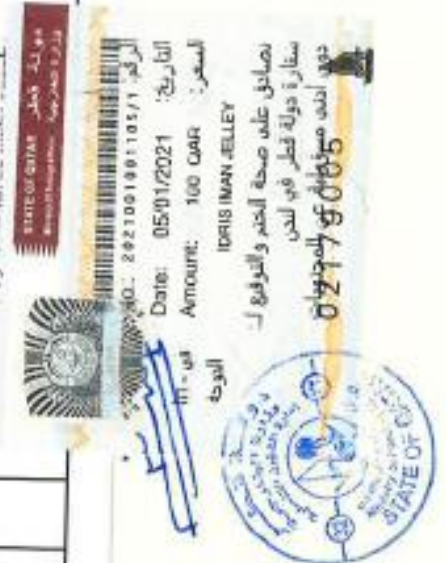 دولة قطر
وزارة الخارجية
STATE OF QATAR
Ministry of Foreign Affairs
الرقم: NO.: 2021001001105/1
التاريخ: Date: 05/01/2021
السعر: Amount: 100 QAR
في - in
الدوحة
IDRIS IMAN JELLEY
نصادق على صحة الختم والتوقيع لـ:
سفارة دولة قطر في لندن
دون أدنى مسؤولية عن المحتويات
02179005
STATE OF QATAR